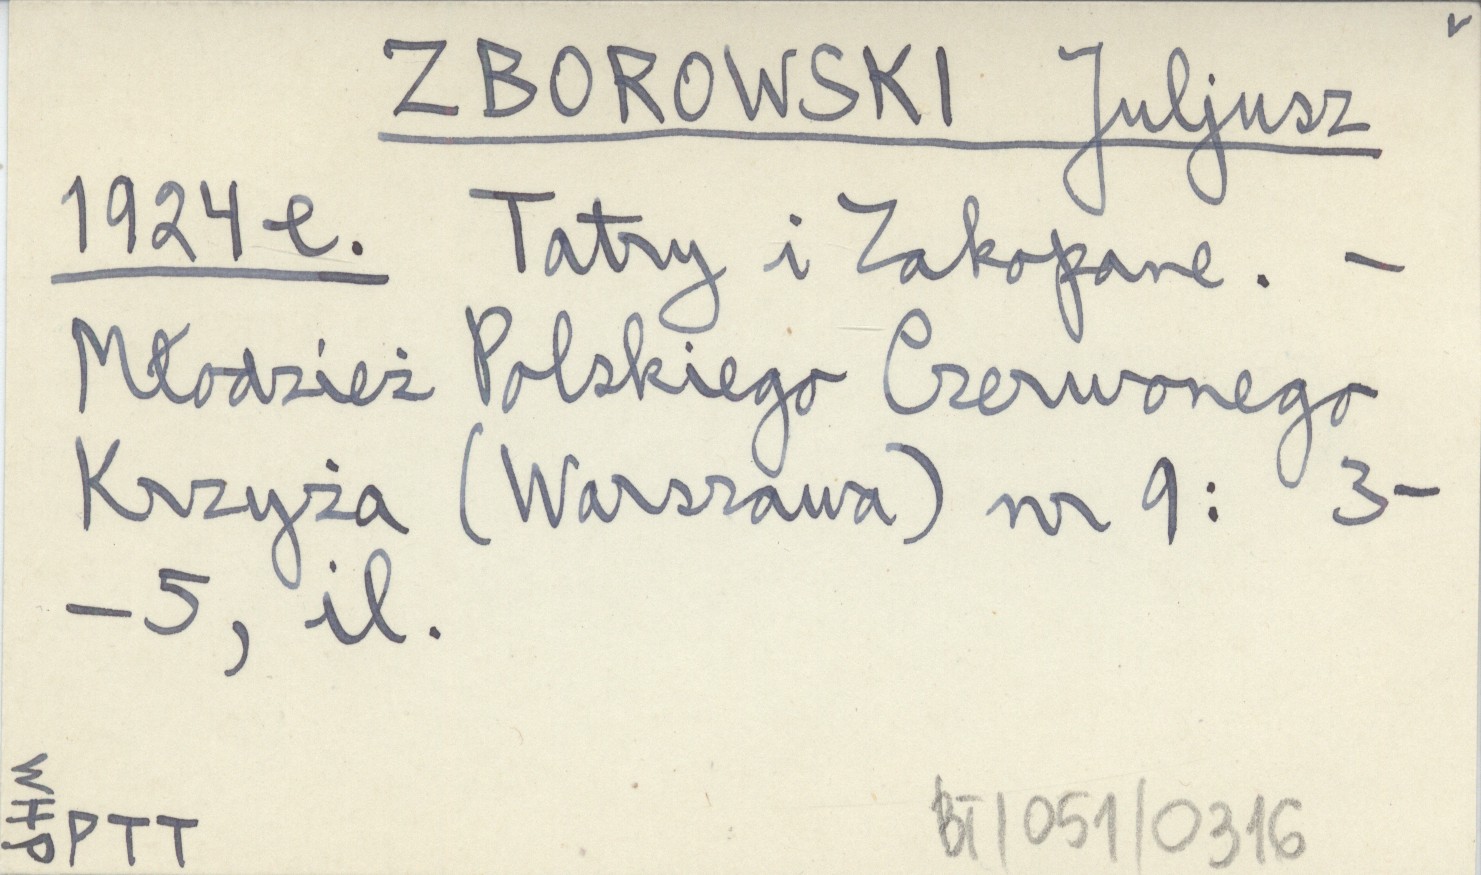 v
ZBOROWSKI Juljusz
1924 e. Tatry i Zakopane. –
Młodzież Polskiego Czerwonego
Krzyża (Warszawa) nr 9: 3–
–5, il.
WHP
PTT
BT/051/0316